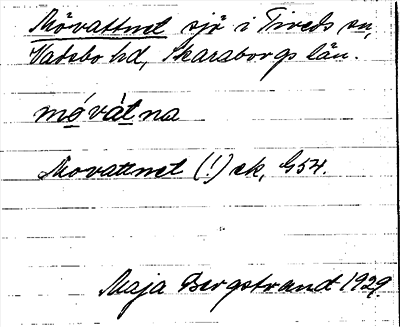 Mövattnet sjö i Tiveds sn,
Vadsbo hd, Skaraborgs län.
mǿvàtna
Movattnet (!) ek, G54.
Maja Bergstrand 1929.